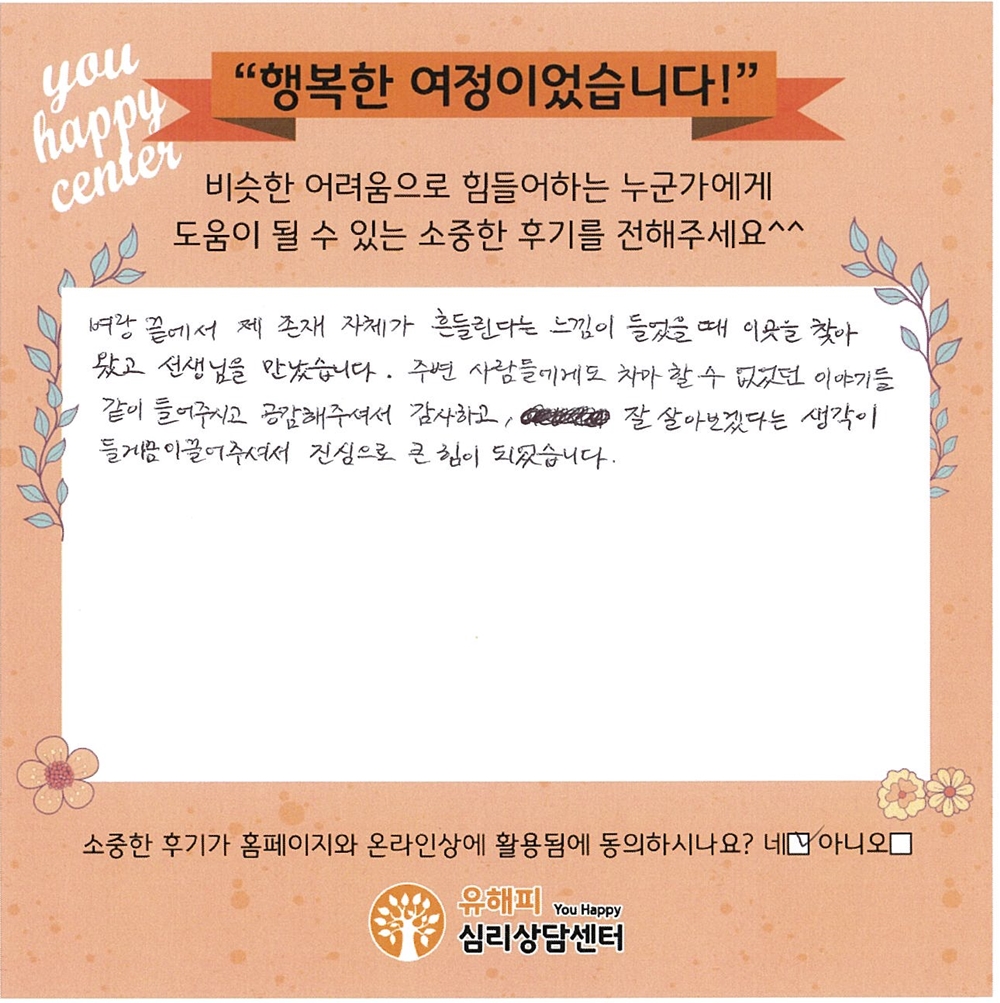 you
happy
center
“행복한 여정이었습니다!”
비슷한 어려움으로 힘들어하는 누군가에게
도움이 될 수 있는 소중한 후기를 전해주세요^^
벼랑 끝에서 제 존재 자체가 흔들린다는 느낌이 들었을 때 이곳을 찾아
왔고 선생님을 만났습니다. 주변 사람들에게도 차마 할 수 없었던 이야기들
같이 들어주시고 공감해주셔서 감사하고, 잘 살아보겠다는 생각이
들게끔 이끌어주셔서 진심으로 큰 힘이 되었습니다.
소중한 후기가 홈페이지와 온라인상에 활용됨에 동의하시나요? 네 아니오
유해피 You Happy
심리상담센터